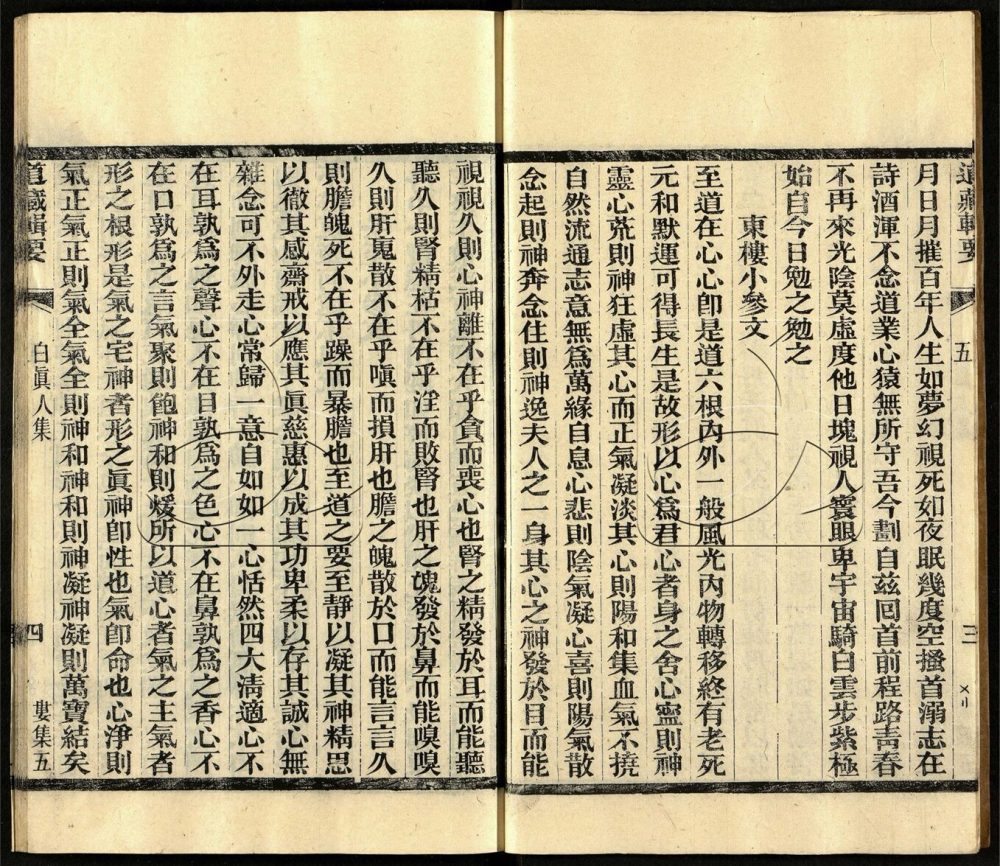 道藏輯要
五
三
月日月摧百年人生如夢幻視死如夜眠幾度空搔首溺志在
詩酒渾不念道業心猿無所守吾今劃自兹囘首前程路靑春
不再來光陰莫虛度他日塊視人寰眼卑宇宙騎白雲步紫極
始自今日勉之勉之
東樓小參文
至道在心心卽是道六根內外一般風光內物轉移終有老死
元和默運可得長生是故形以心爲君心者身之舍心寧則神
靈心荒則神狂虛其心而正氣凝淡其心則陽和集血氣不撓
自然流通志意無爲萬緣自息心悲則陰氣凝心喜則陽氣散
念起則神奔念住則神逸夫人之一身其心之神發於目而能
視視久則心神離不在乎貪而喪心也腎之精發於耳而能聽
聽久則腎精枯不在乎淫而敗腎也肝之魂發於鼻而能嗅嗅
久則肝䰟散不在乎嗔而損肝也膽之魄散於口而能言言久
則膽魄死不在乎躁而暴膽也至道之要至靜以凝其神精思
以徹其感齋戒以應其眞慈惠以成其功卑柔以存其誠心無
雜念可不外走心常歸一意自如如一心恬然四大淸適心不
在耳孰爲之聲心不在目孰爲之色心不在鼻孰爲之香心不
在口孰爲之言氣聚則飽神和則煖所以道心者氣之主氣者
形之根形是氣之宅神者形之眞神卽性也氣卽命也心淨則
氣正氣正則氣全氣全則神和神和則神凝神凝則萬寶結矣
道藏輯要
白眞人集
四
婁集五